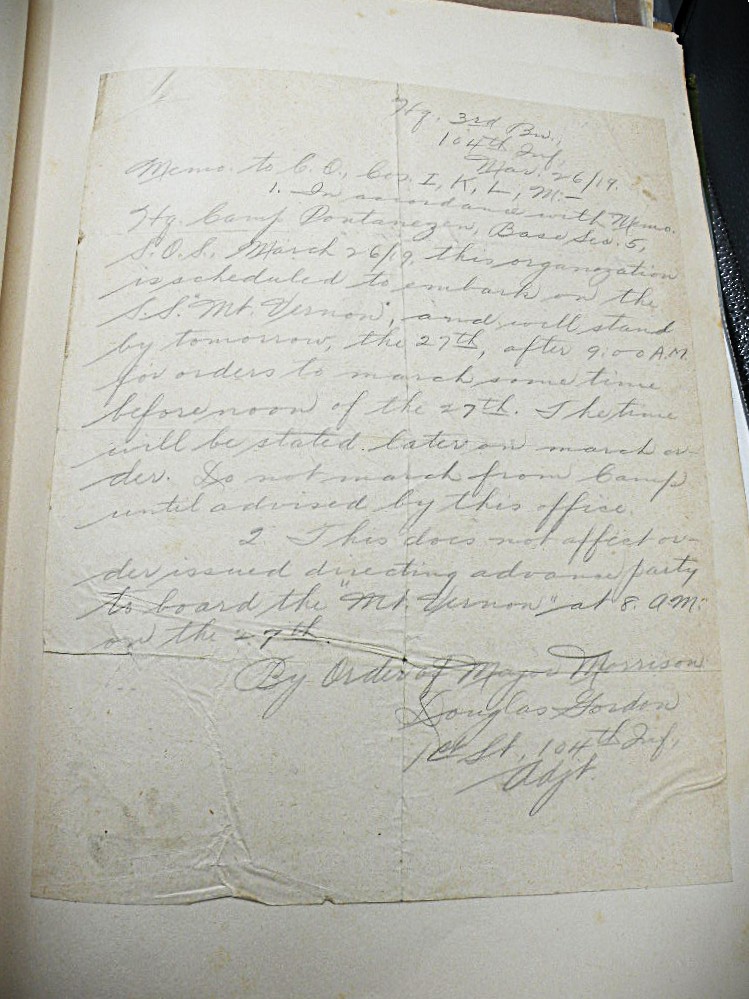 Hq. 3rd Bn.,
104th Inf.,
Mar. 26/19.
Memo. to C.O., Cos. I, K, L, M:-
1. In accordance with Memo.
Hq. Camp Pontanezen, Base Sec. 5,
S.O.S., March 26/19, this organization
is scheduled to embark on the
S.S. "Mt. Vernon", and will stand
by tomorrow, the 27th, after 9:00 A.M.
for orders to march some time
before noon of the 27th. The time
will be stated later on march or-
der. Do not march from Camp
until advised by this office.
2. This does not affect or-
der issued directing advance party
to board the "Mt. Vernon" at 8. A.M.
on the 27th.
By Order of Major Morrison
Douglas Gordon
1st Lt., 104th Inf.,
Adjt.